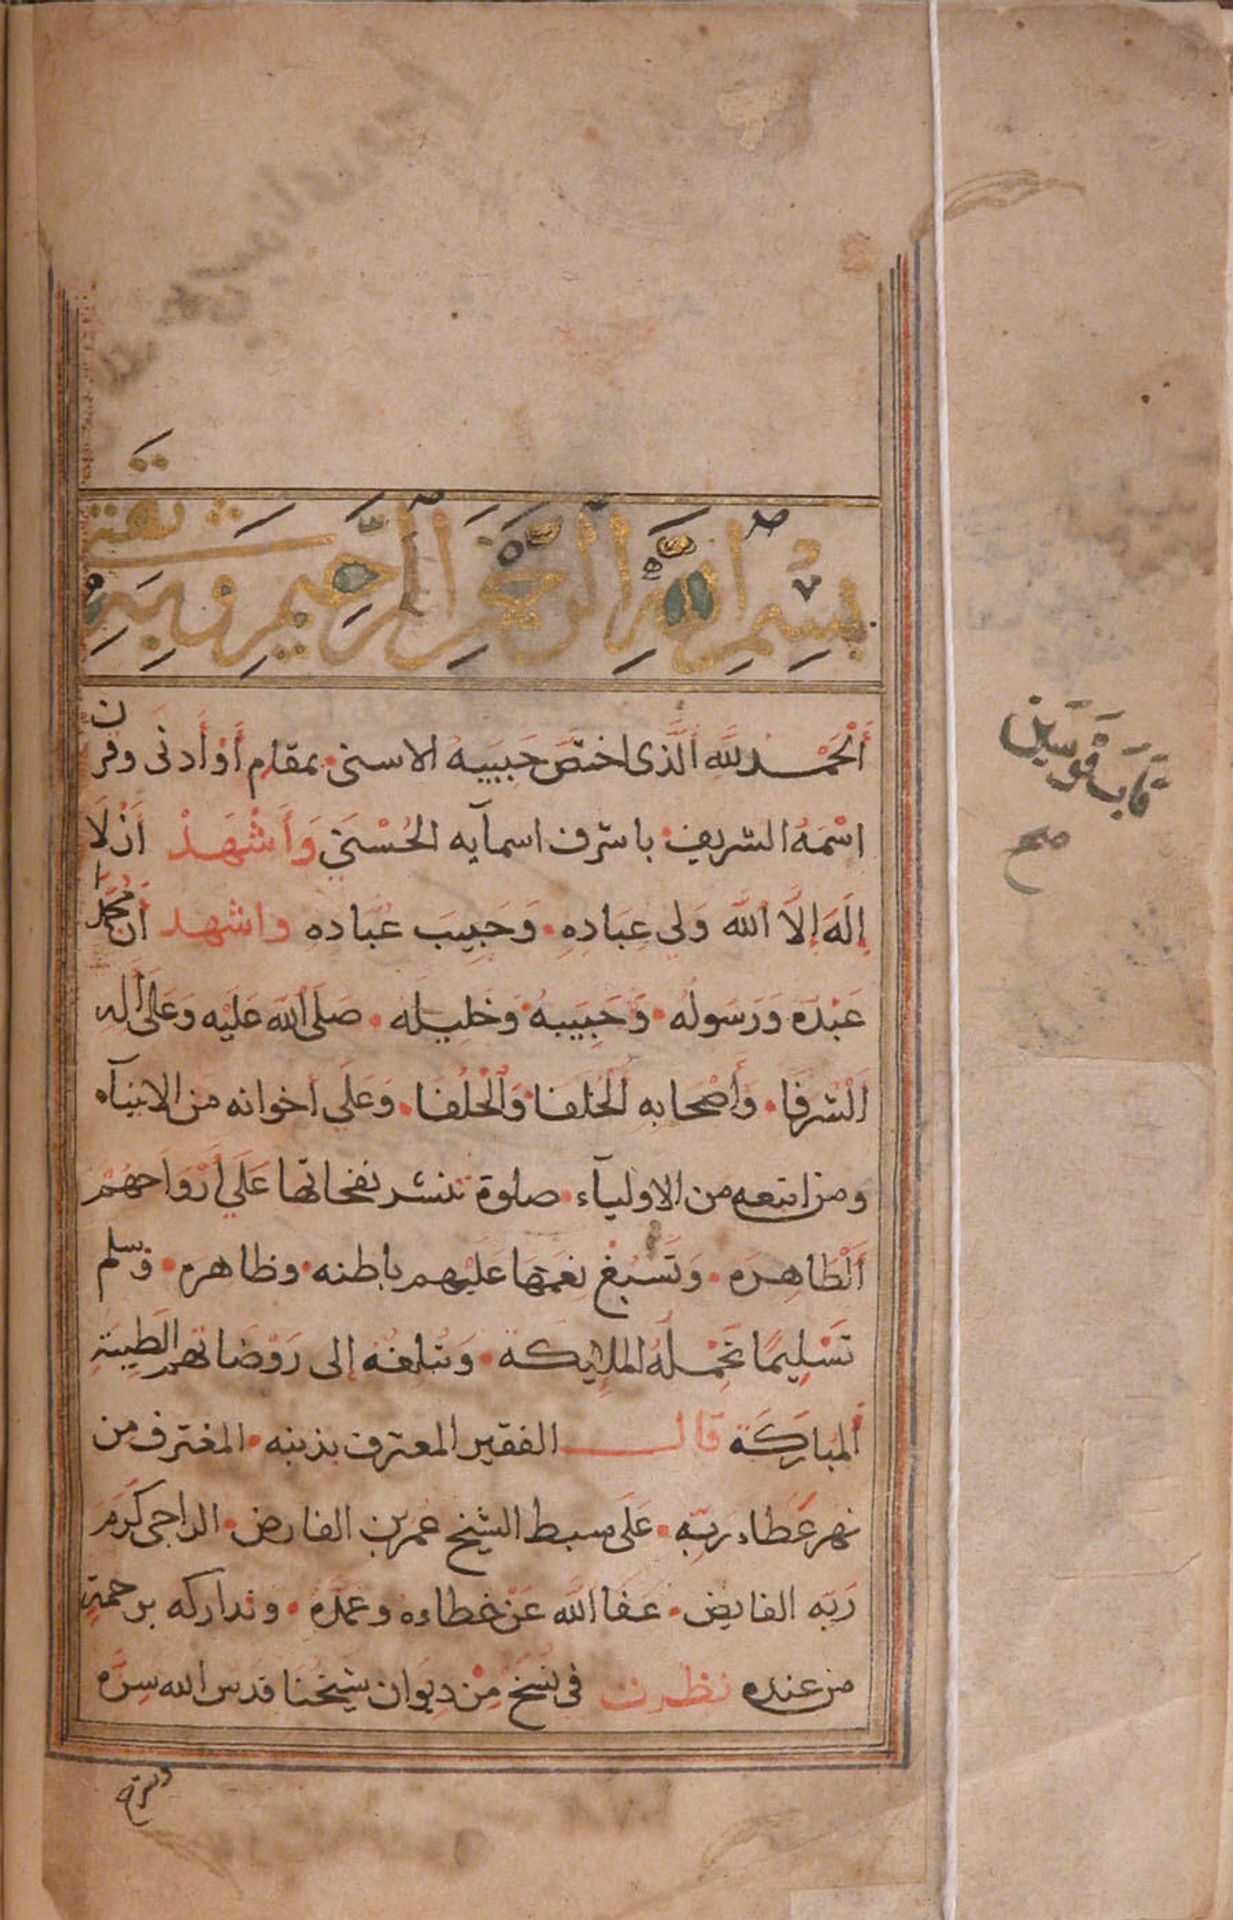 بسم الله الرحمن الرحيم وبه ثقتي
اَلْحَمْدُ لله الَّذى اختصَّ حَبيبه الاسنى بمقام أوْأَدنَى وقرن
اسْمَهُ الشريف باشرف اسمآيه الحُسْنَى وَأَشْهَدُ اَنْ لَا
إِلَهَ إِلَّا الله وَلي عِبَادِهِ وَحَبيبَ عُبَّاده واشهد أنّ محمدًا
عَبْدَه وَرَسُولُه وَحَبِيبهُ وَخليله صَلَى الله عَليْه وَعَلَى أله
اَلْشرفَا وَأصْحابه اَلْحُلفَا وَالْخُلفا وَعَلَى اخوانه من الانبيآء
ومن اتبعه من الاوليآء صلوة تنشر نفحاتها عَلَى أَرْوَاحِهُمْ
اَلْطَاهِرَه وَتَسبغ نعمَتها عَليْهم باطنه وظاهره وَسلم
تَسْلِيمًا تحْمله الملايكة وَتبلغُه إلى رَوْضَاتهم الطيبَة
اَلمباركَة قال الفقير المعترف بذنبه المغترف من
نهر عَطاء ربّه عَلى سبط الشيخ عُمر بن الفارض الراجى كَرمَ
رَبّه الفايض عَفَا الله عَنْ خطاءه وعمَّدَه وتداركه برحمةٍ
من عنده نظرت فى نسُخَ مِنْ ديوَان شيْخُنَا قدس الله سرَّه
قابَ قوْسَين
صح